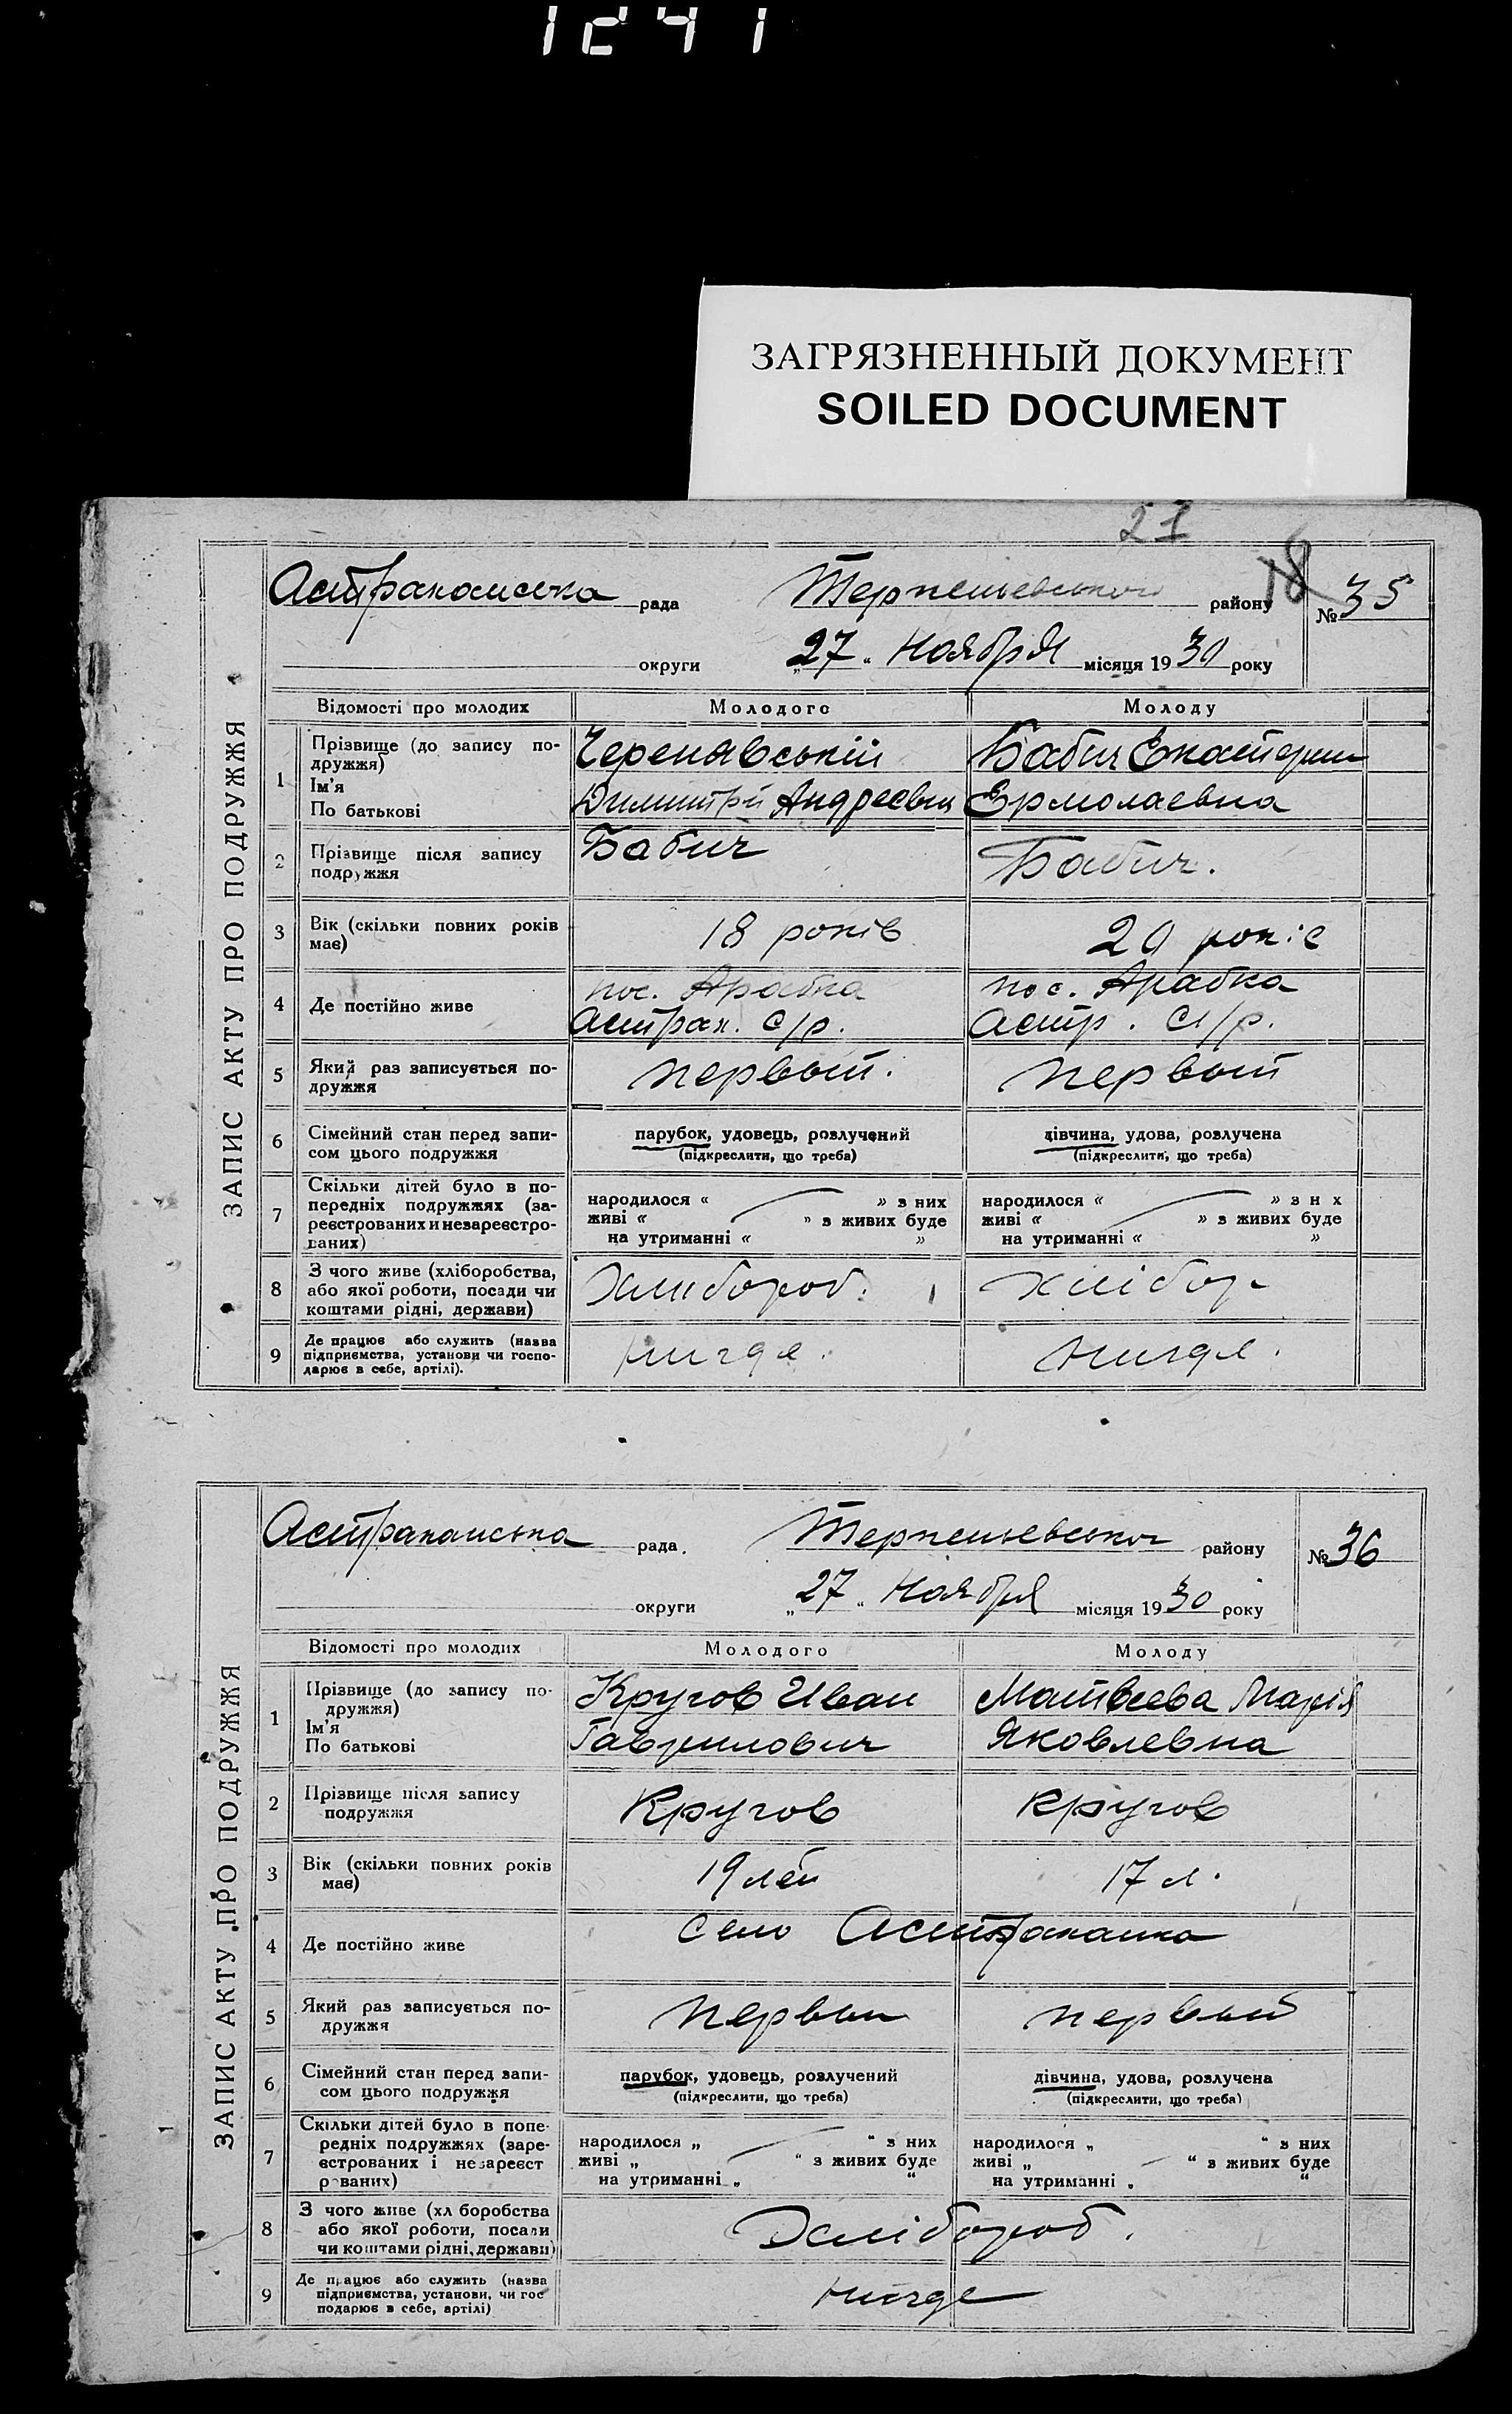 1241
ЗАГРЯЗНЕННЫЙ ДОКУМЕНТ
SOILED DOCUMENT
21
18
ЗАПИС АКТУ ПРО ПОДРУЖЖЯ
Астраханська рада Терпеньевського району № 35
округи „27„ Ноября місяця 1930 року
Відомості про молодих Молодого Молоду
1 Прізвище (до запису по-
дружжя)
Ім'я
По батькові
Черенявський Бабич Екатерин
Димитрій Андреевич Ермолаевна
2 Прізвище після запису
подружжя
Бабич Бабич.
3 Вік (скільки повних років
має)
18 років 20 років
4 Де постійно живе
пос. Арабка пос. Арабка
Астрах. с/р. Астр. с/р.
5 Який раз записується по-
дружжя
первый. первый
6 Сімейний стан перед запи-
сом цього подружжя
парубок, удовець, розлучений дівчина, удова, розлучена
(підкреслити, що треба) (підкреслити, що треба)
7 Скільки дітей було в по-
передніх подружжях (за-
реєстрованих и незареєстро-
ваних)
народилося « » з них народилося « » з н х
живі « » з живих буде живі « » з живих буде
на утриманні « » на утриманні « »
8 З чого живе (хліборобства,
або якої роботи, посади чи
коштами рідні, держави)
Хлибороб. хлібор
9 Де працює або служить (назва
підприємства, установи чи госпо-
дарює в себе, артілі).
нигде. нигде.
ЗАПИС АКТУ ПРО ПОДРУЖЖЯ
Астраханська рада. Терпеньевського району № 36
округи „27„ Ноября місяця 1930 року
Відомості про молодих Молодого Молоду
1 Прізвище (до запису по-
дружжя)
Ім'я
По батькові
Кругов Иван Матвеева Марія
Гаврилович Яковлевна
2 Прізвище після запису
подружжя
Кругов Кругов
3 Вік (скільки повних років
має)
19 лет 17 л.
4 Де постійно живе
Село Астраханка
5 Який раз записується по-
дружжя
первый первый
6 Сімейний стан перед запи-
сом цього подружжя
парубок, удовець, розлучений дівчина, удова, розлучена
(підкреслити, що треба) (підкреслити, що треба)
7 Скільки дітей було в попе-
редніх подружжях (заре-
єстрованих і незареєст
рованих)
народилося „ “ з них народилося „ “ з них
живі „ “ з живих буде живі „ “ з живих буде
на утриманні „ “ на утриманні „ “
8 З чого живе (хл боробства
або якої роботи, посади
чи коштами рідні, держави)
Хлібороб.
9 Де працює або служить (назва
підприємства, установи, чи гос
подарює в себе, артілі)
нигде